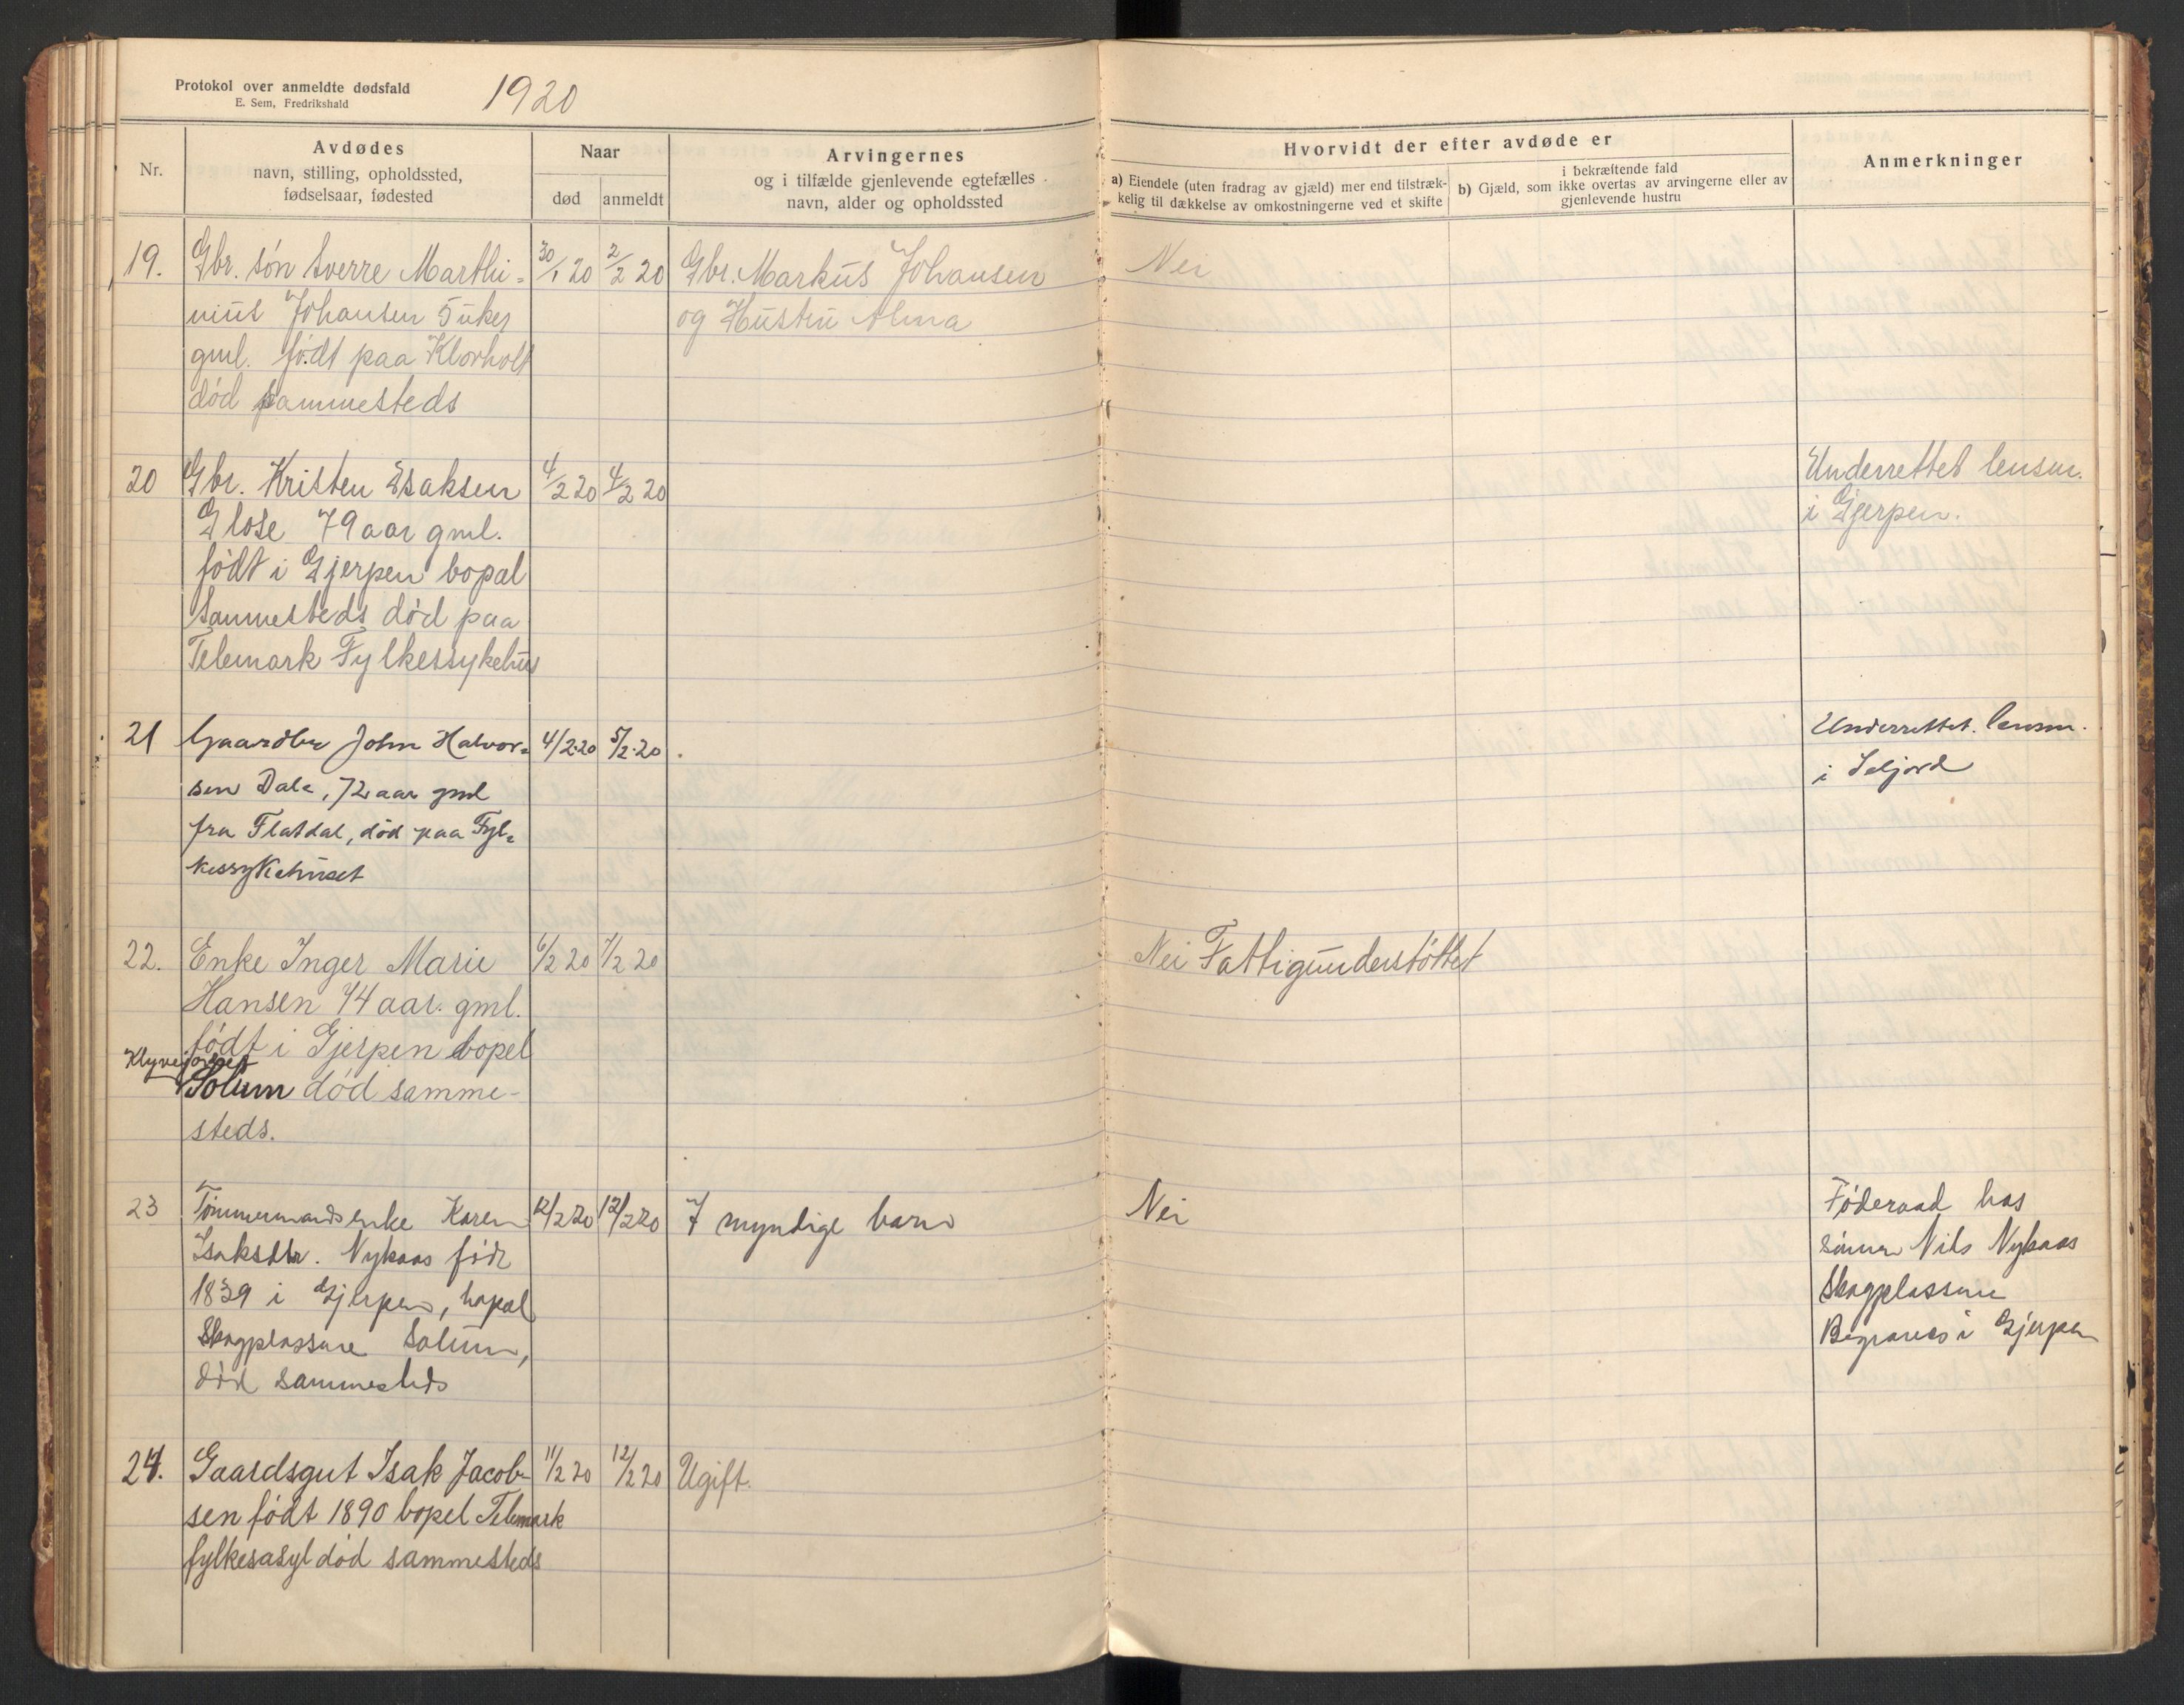 Protokol over anmeldte dødsfald
E. Sem, Fredrikshald
1920
Nr.
Avdødes
navn, stilling, opholdssted,
fødselsaar, fødested
Naar
død
anmeldt
Arvingernes
og i tilfælde gjenlevende egtefælles
navn, alder og opholdssted
Hvorvidt der efter avdøde er
a) Eiendele (uten fradrag av gjæld) mer end tilstræk-
kelig til dækkelse av omkostningerne ved et skifte
i bekræftende fald
b) Gjæld, som ikke overtas av arvingerne eller av
gjenlevende hustru
Anmerkninger
19. Gbr. søn Sverre Marthi= 30/1 20 2/2 20 Gbr. Markus Johansen Nei
nius Johansen 5 uker og Hustru Alma
gml. født paa Klovholt
død sammesteds
20 Gbr. Kristen Isaksen 4/2 20 4/2 20 Underrettet lensm.
Glose 79 aar gml. i Gjerpen.
født i Gjerpen bopal
sammesteds død paa
Telemark Fylkessykehus
21 Gaardbr John Halvor= 4/2.20 5/2.20 Underrettet. lensm.
sen Dale, 72 aar gml i Seljord
fra Flatdal, død paa Fyl=
kessykehuset
22. Enke Inger Marie 6/2 20 7/2 20 Nei Fattigunderstöttet
Hansen 74 aar. gml.
født i Gjerpen bopel
Klyvejordet
Solum død samme-
steds.
23 Tømmermandsenke Karen 12/2 20 12/2 20 7 myndige barn Nei Føderaad hos
Isaksdtr. Nykaas født sønnen Nils Nykaas
1839 i Gjerpen, bopal Skogplassene
Skogplassene Solum, Begraves i Gjerpen
død sammesteds
24. Gaardsgut Isak Jacob- 11/2 20 12/2 20 Ugift.
sen født 1890 bopel Telemark
fylkesasyl død sammesteds